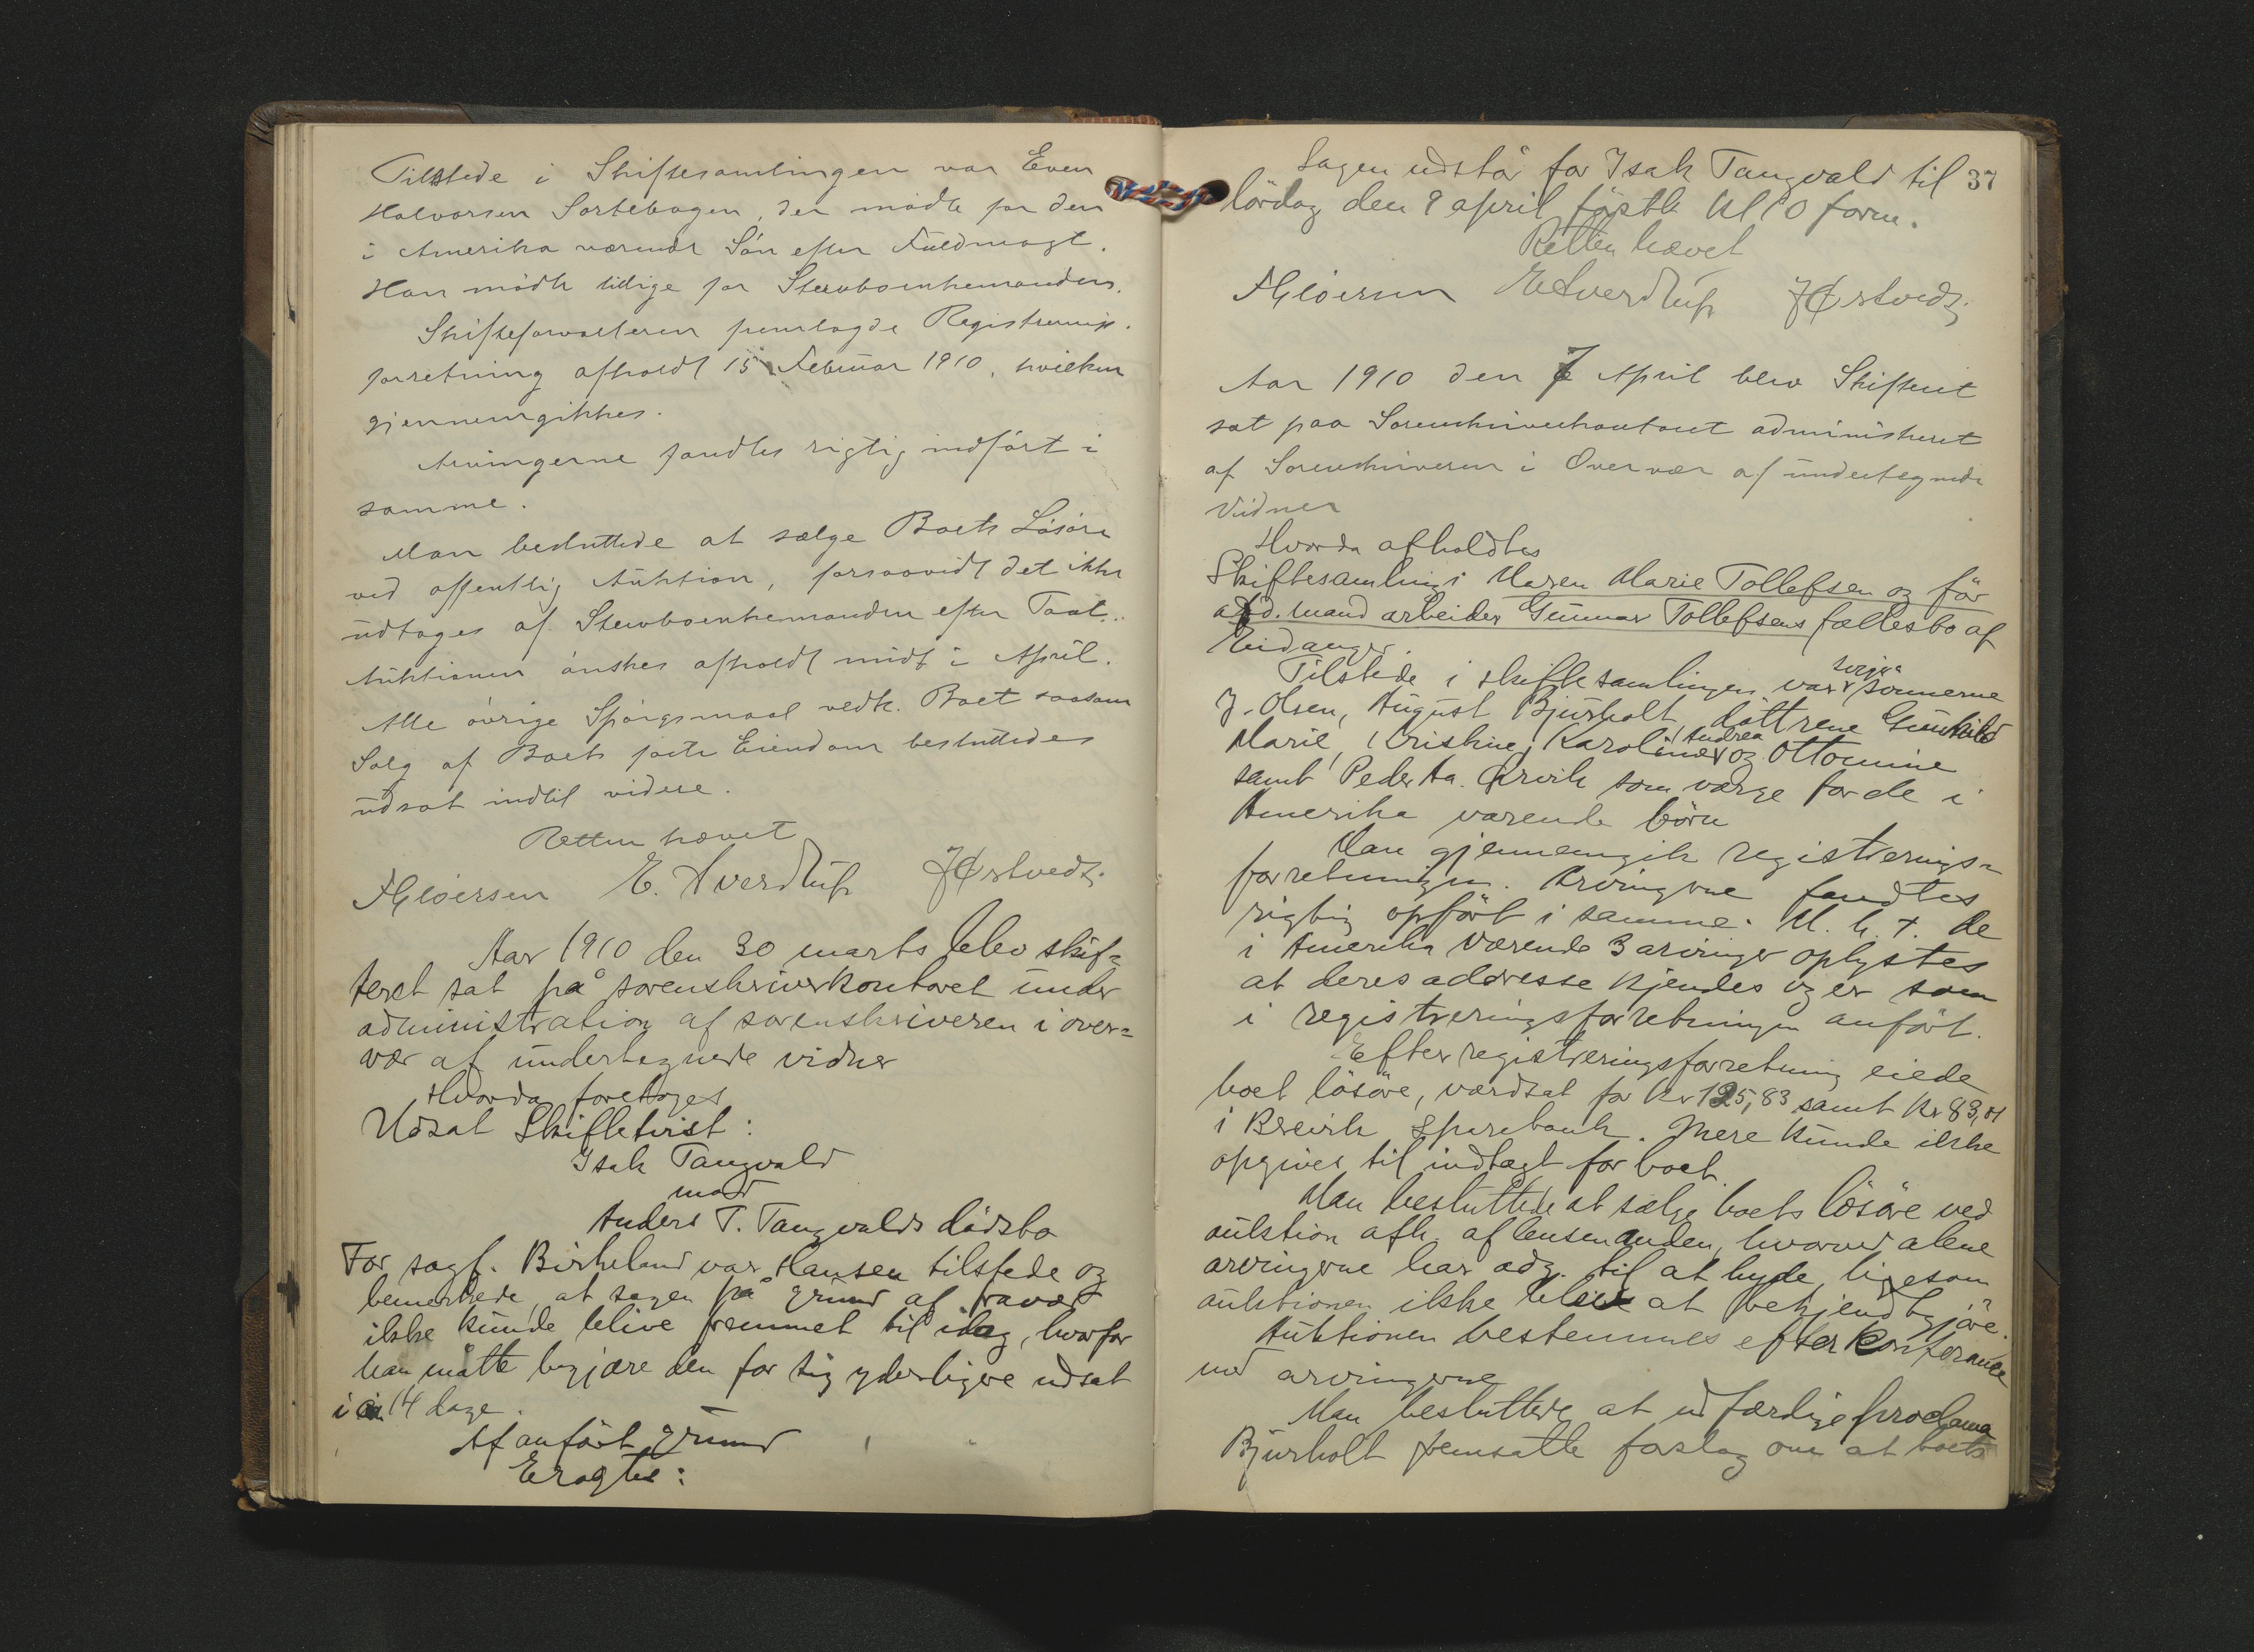 Tilstede i Skiftesamlingen var Even
Halvorsen Sortebogen, der mødte for den
i Amerika værende Søn efter Fuldmagt.
Han mødte tillige for Stervboenkemanden.
Skifteforvalteren fremlagde Registrerings-
forretning afholdt 15 Februar 1910, hvilken
gjennemgikkes.
Arvingerne fandtes rigtig indført i
samme.
Man besluttede at sælge Boets Løsøre
ved offentlig Auktion, forsaavidt det ikke
udtages af Stervboenkemanden efter Taxt.
Auktionen ønskes afholdt midt i April.
Alle øvrige Spørgsmaal vedk. Boet saasom
Salg af Boets faste Eiendom besluttedes
udsat indtil videre.
Retten hævet
E. Sverdrup J Ørstvedt.
Aar 1910 den 30 marts blev skif=
teret sat på sorenskriverkontoret under
administration af sorenskriveren i over=
vær af undertegnede vidner
Hvorda foretoges
Udsat Skiftetvist:
Isak Tangvald
mod
Anders T. Tangvalds dødsbo
For sagf. Birkeland var Hansen tilstede og
bemerkede, at sagen på grund af fravær
ikke kunde blive fremmet til idag, hvorfor
han måtte begjære den for sig yderligere udsat
i 14 dage.
Af anført grund
Eragtes:
Sagen udstår for Isak Tangvald til 37
lördag den 9 april förstk kl 10 form.
Retten hævet
E Sverdrup J Ørstvedt.
Aar 1910 den 7 April blev Skifteret
sat paa Sorenskriverkontoret administreret
af Sorenskriveren i Overvær af undertegnede
Vidner
Hvorda afholdtes
Skiftesamling i Maren Marie Tollefsen og för
afd. mand arbeider Gunnar Tollefsens fællesbo af
Eidanger.
Tilstede i skiftesamlingen var svigersønnerne
J. Olsen, August Bjurholt, døttrene Gunhild
Marie, Kristine, Karoline, Andrea og Ottomine
samt Peder Aa. Ørvik som værge for de i
Amerika værende börn
Man gjennemgik registrerings=
forretningen. Arvingerne fandtes
rigtig opfört i samme. M. h. t. de
i Amerika værende 3 arvinger oplystes
at deres addresse kjendes og er som
i registreringsforretningen anfört.
Efter registreringsforretning eiede
boet lösöre, værdsat for kr 125,83 samt kr 83,01
i Brevik sparebank. Mere kunde ikke
opgives til indtægt for boet.
Man besluttede at sælge boets lösöre ved
auktion afh. af lensmanden, hvorved alene
arvingerne har adg. til at byde, ligesom
auktionen ikke blir at bekjendtgjöre.
Auktionen bestemmes efter konferance
med arvingerne
Man besluttede at udfærdige proclama
Bjurholt fremsatte forslag om at boets